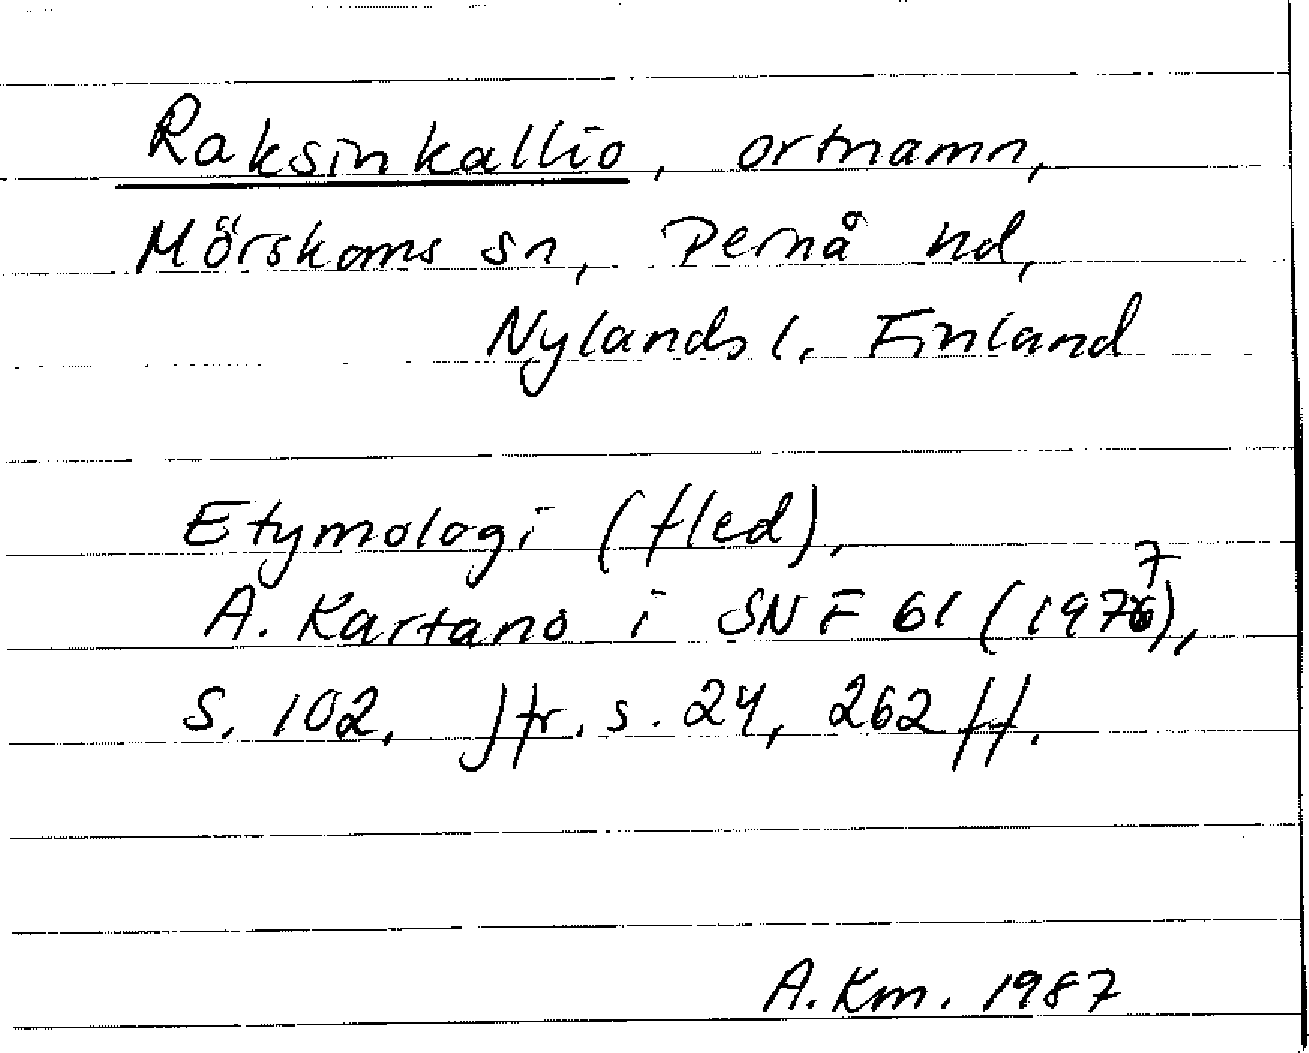 Raksinkallio, ortnamn,
Mörskoms sn, Pernå hd,
Nylands l, Finland
Etymologi (fled),
A. Kartano i SNF 61 (1977),
s. 102. Jfr. s. 24, 262 ff.
A. Km. 1987